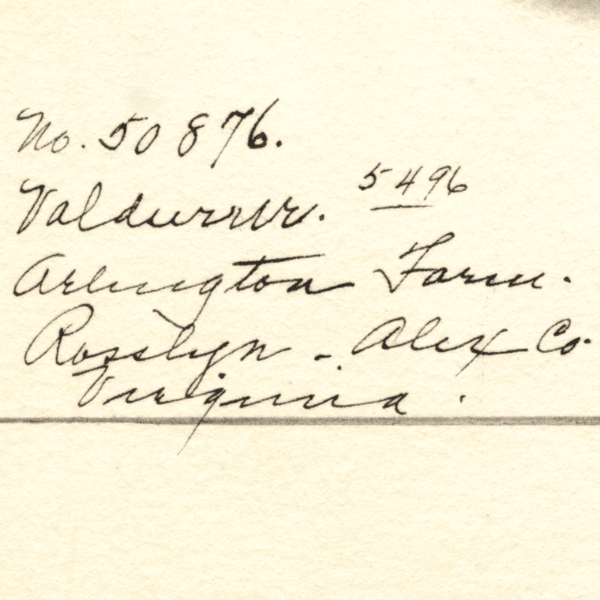 No. 50876.
Valdurrer. 5496
Arlington Farm.
Rosslyn - Alex Co.
Virginia.